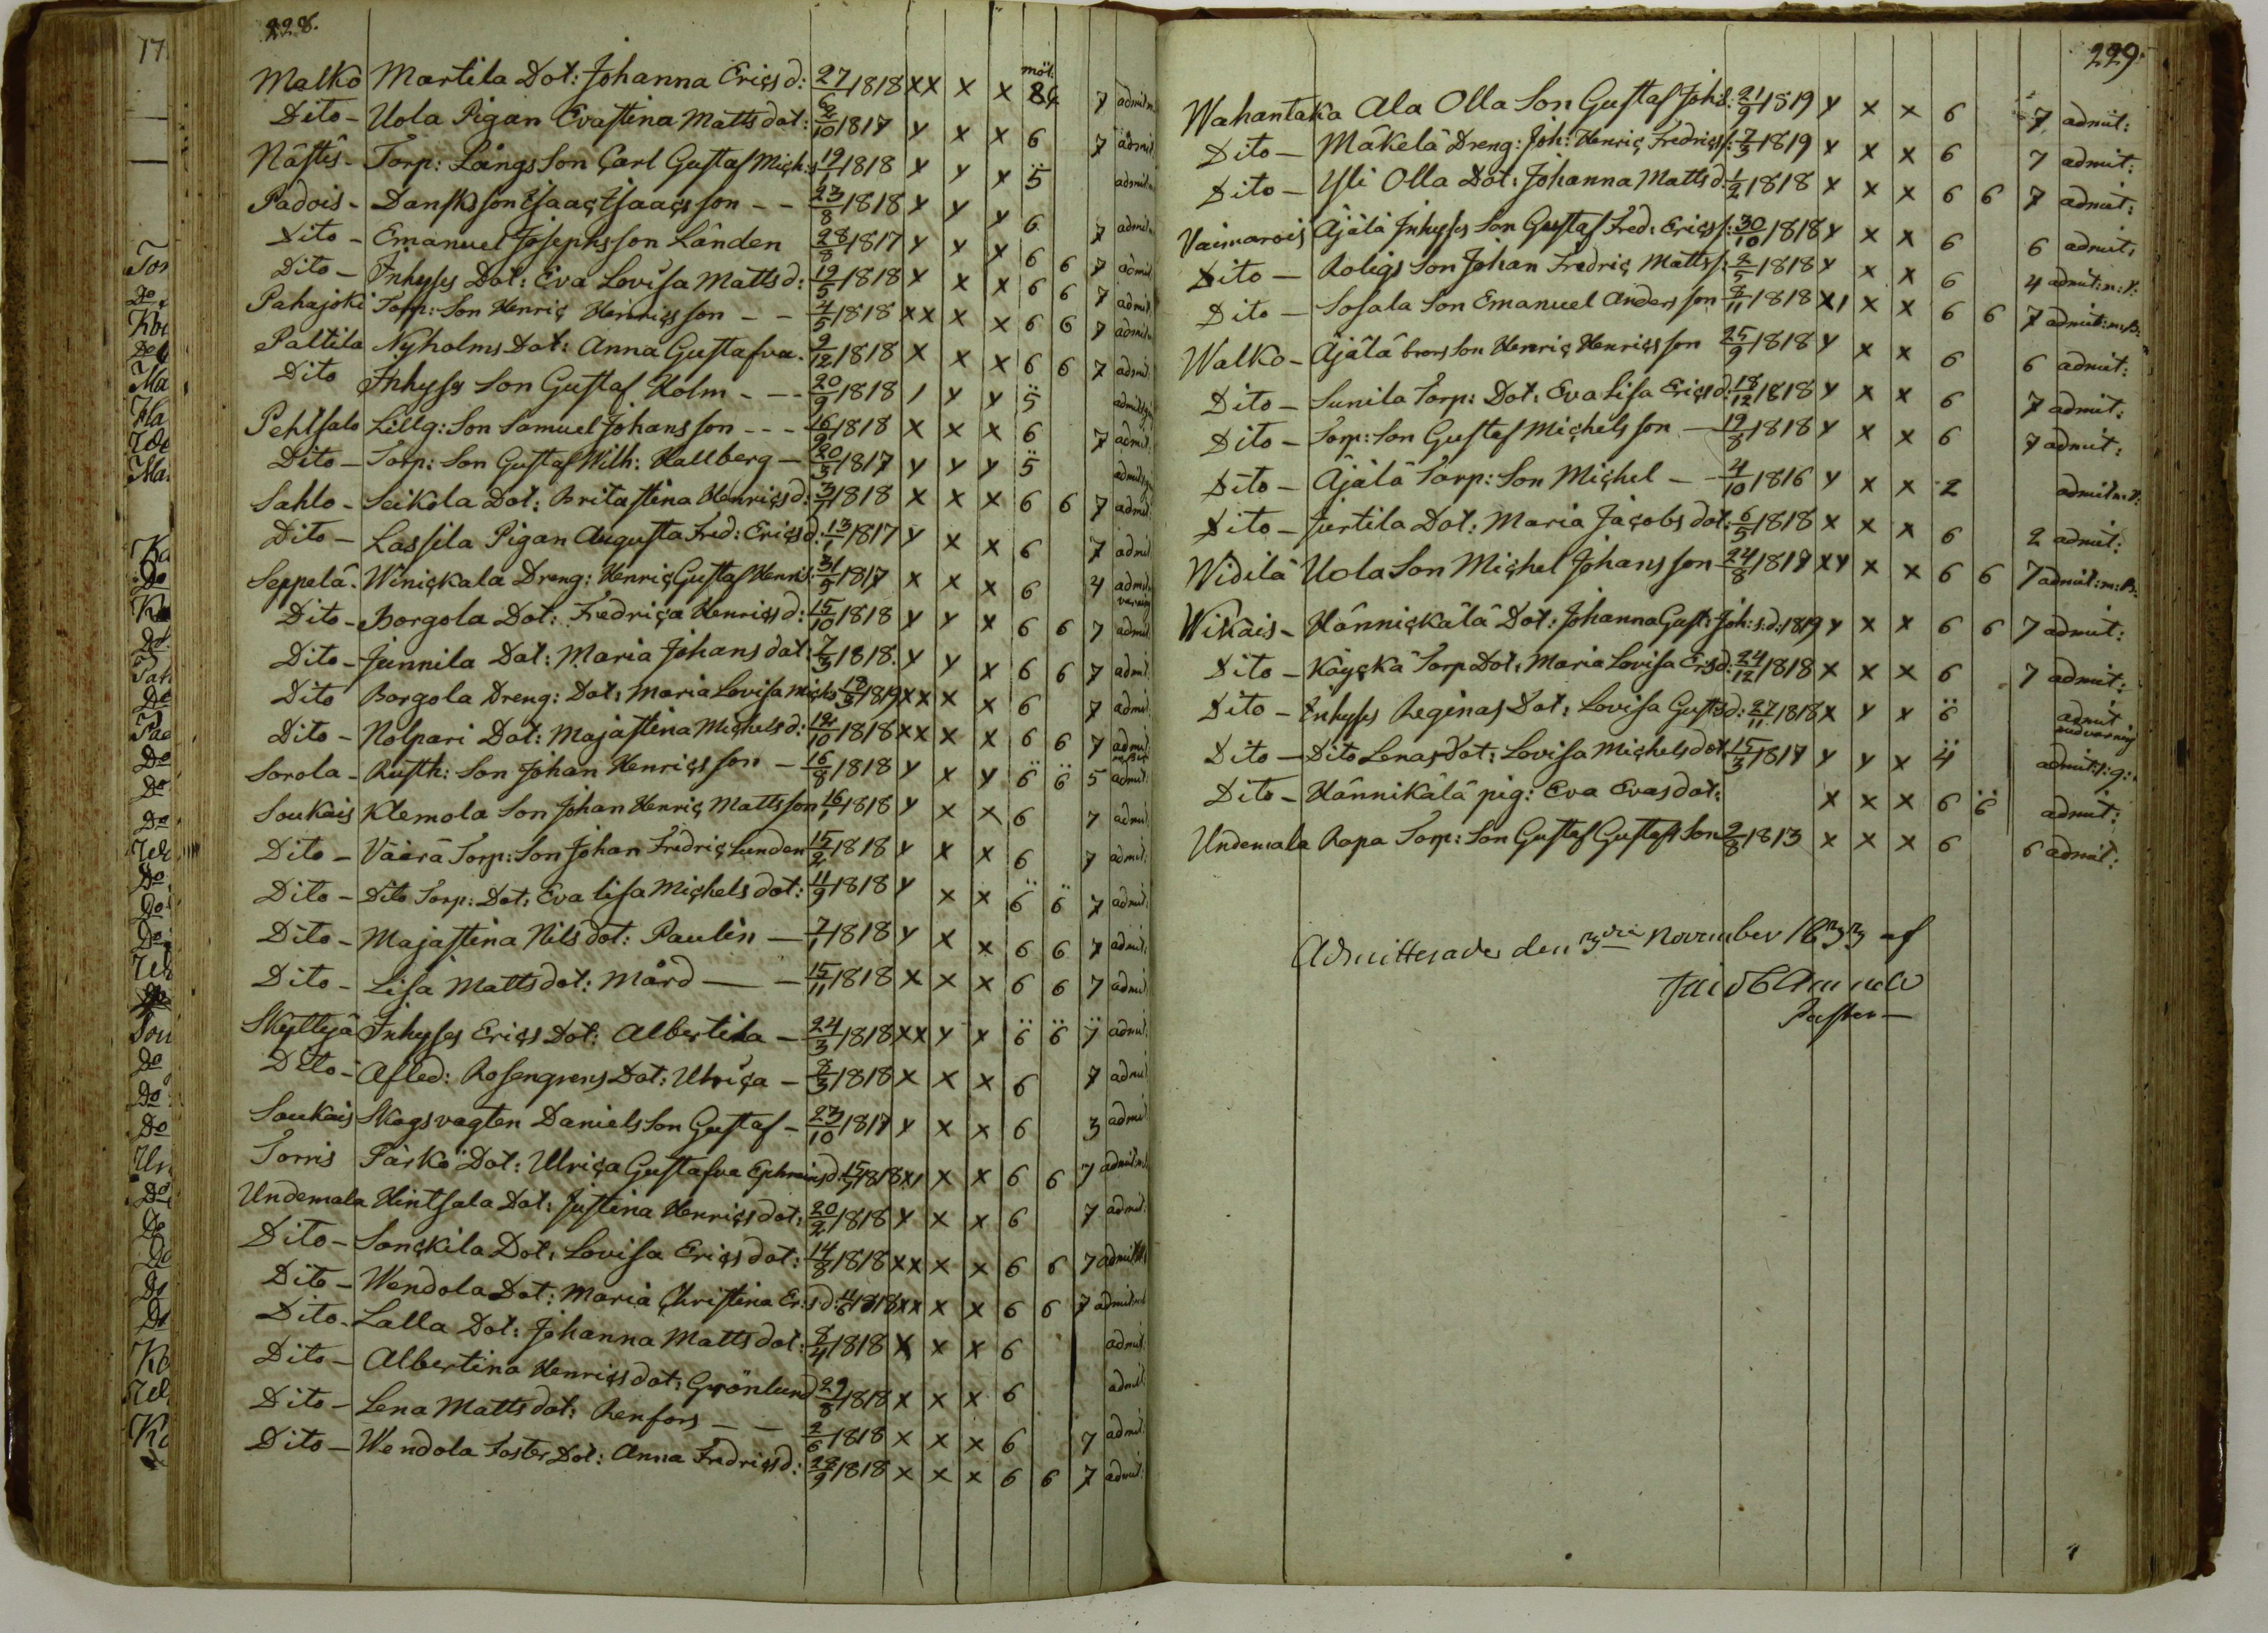 228.
Malko Martila Dot: Johanna Ericsd: 27/6 1818 xx x x 84 7 admit
Dito - Uola Pigan Evastina Matts dot: 2/10 1817 y x x 6 7 admit
Nästis - Torp: Långs Son Carl Gustaf Mich:s 19/1 1818 x y x 5 admit
Padois - Dansks son Isaac Isaacs son - - 23/8 1818 y y y 6 7 admit
Dito - Emanuel Josephsson Länden 28/8 1817 y x x 6 6 7 admit
Dito - Inhyses Dot: Eva Lovisa Mattsd: 19/5 1818 x x x 6 6 7 admit
Pahajoki Torp: Son Henric Henrics son - - 4/5 1818 xx x x 6 6 7 admit
Paltila Nyholms Dot: Anna Gustafva. 9/12 1818 x x x 6 6 7 admit
Dito Inhyses Son Gustaf Holm - - - 20/9 1818 / y y 5
Pehlsalo Lillg: Son Samuel Johans son - - - 16/ 1818 x x x 6 7 admit
Dito - Torp: Son Gustaf Wilh: Hallberg - 20/3 1817 y y y 5
Sahlo - Seikola Dot: Britastina Henricsd: 3/7 1818 x x x 6 6 7 admit
Dito - Lassila Pigan Augusta Fred: Ericsd: 13/1 1817 y x x 6 7 admit
Seppelä - Winickala Dreng: Henric Gustaf Henris: 31/5 1817 x x x 6 4 admit
Dito - Borgola Dot: Fredrica Henricsd: 15/10 1818 y y x 6 6 7 admit
Dito - Junnila Dot: Maria Johans dot: 7/3 1818. y y x 6 6 7 admit
Dito Borgola Dreng: Dot: Maria Lovisa Michs 1819 xx x x 6 7 admit
Dito - Nolpari Dot: Majastina Michelsd: 12/10 1818 xx x x 6 6 7 admit
Sorola - Rusth: Son Johan Henrics son - 16/8 1818 y x y 6 6 5 admit:
Soukais Klemola Son Johan Henric Matts son 16/1 1818 y x x 6 7 admit
Dito - Väärä Torp: Son Johan Fredric Lunden 15/2 1818 y x x 6 7 admit:
Dito - Dito Torp: Dot: Eva Lisa Michels dot: 11/9 1818 y x x 6 6 7 admit:
Dito - Majastina Nils dot: Paulin - 7/1 1818 y x x 6 6 7 admit:
Dito - Lisa Matts dot: Mård - - 15/11 1818 x x x 6 6 7 admit
Skyttyä Inhyses Erics Dot: Albertina - 24/3 1818 xx y x 6 6 7 admit:
Dito - Afled: Rosengrens Dot: Ulrica - 8/3 1818 x x x 6 7 admit
Soukais Skogsvagten Daniels Son Gustaf - 23/10 1817 y x x 6 3 admit
Torris Pärkö Dot: Ulrica Gustafva Ephraimsd: 1818 x/ x x 6 6 7 admit
Undemala Hintsala Dot: Justina Henrics dot: 20/2 1818 y x x 6 7 admit:
Dito - Sonckila Dot: Lovisa Erics dot: 14/8 1818 xx x x 6 6 7 admit
Dito - Wendola Dot: Maria Christina Er:s d: 4/6 1818 xx x x 6 6 7 admit
Dito - Lalla Dot: Johanna Matts dot: 8/4 1818 x x x 6 admit:
Dito - Albertina Henrics dot: Grönlund 29/8 1818 x x x 6 admit:
Dito - Lena Matts dot: Renfors - - 2/6 1818 x x x 6 7 admit:
Dito - Wendola Foster Dot: Anna Fredricsd: 28/9 1818 x x x 6 6 7 admit:
229.
Wahantaka Ala Olla Son Gustaf Joh:s: 21/9 1819 y x x 6 7 admit:
Dito - Mäkelä Dreng: Joh: Henric Fredrics s: 7/3 1819 y x x 6 7 admit:
Dito - Yli Olla Dot: Johanna Matts d: 1/2 1818 x x x 6 6 7 admit:
Vaimarois Äjälä Inhyses Son Gustaf Fred: Erics s: 30/10 1818 y x x 6 6 admit:
Dito - Roligs Son Johan Fredric Matts s: 2/5 1818 y x x 6 4 admit: n: v:
Dito - Sosala Son Emanuel Anders son 8/11 1818 x/ x x 6 6 7 admit: m: B:
Walko - Äjälä brors Son Henric Henrics son 25/9 1818 y x x 6 6 admit:
Dito - Sunila Torp: Dot: Eva Lisa Ericsd: 18/12 1818 y x x 6 7 admit:
Dito - Torp: Son Gustaf Michels son - 19/8 1818 y x x 6 7 admit:
Dito - Äjälä Torp: Son Michel - - 4/10 1816 y x x 2 admit: n: v:
Dito - Jurtila Dot: Maria Jacobs dot: 6/5 1818 x x x 6 2 admit:
Widilä Uola Son Michel Johans son 24/8 1817 xy x x 6 6 7 admit: m: B:
Wikäis - Hännickälä Dot: Johanna Gust: Joh: s: d: 1819 y x x 6 6 7 admit:
Dito - Käyckä Torp Dot: Maria Lovisa Ersd: 24/12 1818 x x x 6 7 admit:
Dito - Inhyses Reginas Dot: Lovisa Gustsd: 27/11 1818 x y x 6 admit
Dito - Dito Lenas Dot: Lovisa Michels dot: 15/3 1817 y y x 4 admit: s: g:
Dito - Hännikälä pig: Eva Evas dot: x x x 6 6 admit:
Undemala Rapa Torp: Son Gustaf Gustafs Son 2/8 1813 x x x 6 6 admit:
Admitterades den 3die November 1833 af
Pastor